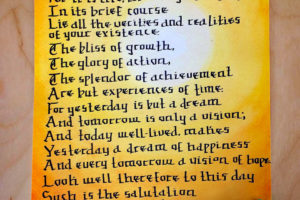 In its brief course
Lie all the verities and realities
of your existence:
The bliss of growth,
The glory of action,
The splendor of achievement
Are but experiences of time.
For yesterday is but a dream
And tomorrow is only a vision;
And today well-lived, makes
Yesterday a dream of happiness
And every tomorrow a vision of hope.
Look well therefore to this day
Such is the salutation